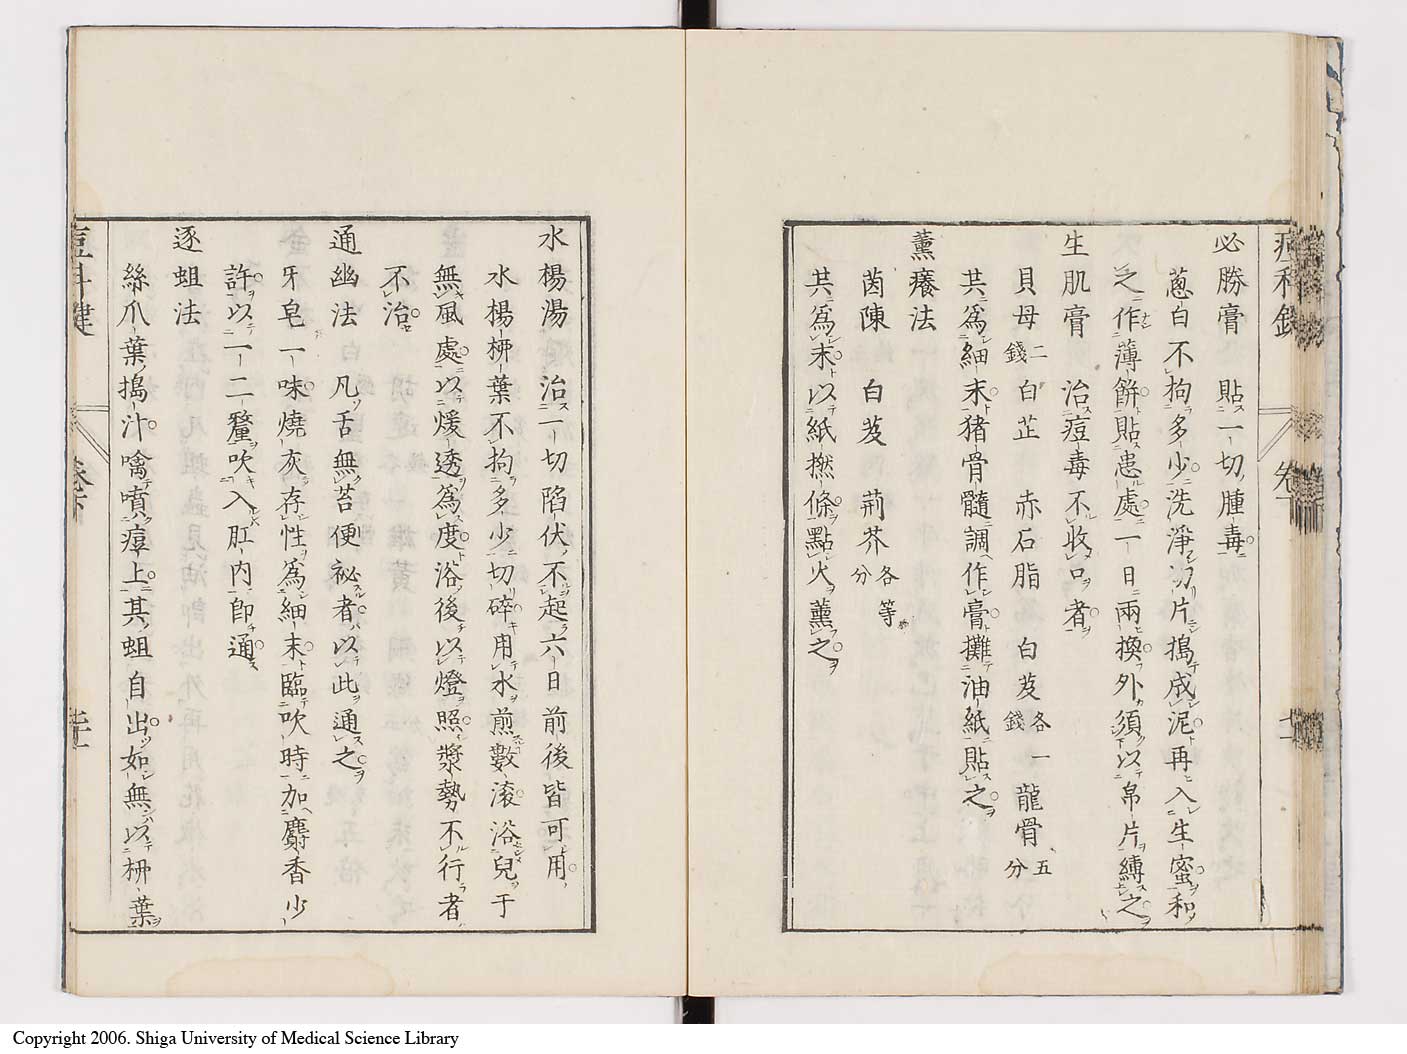 必勝膏 貼一切腫毒
葱白不拘多少洗淨切片搗成泥再入生蜜和
之作薄餅貼患處一日兩換外須以帛片縛之
生肌膏 治痘毒不收口者
貝母二錢白芷 赤石脂 白芨各一錢龍骨五分
共爲細末猪骨髓調作膏攤油紙貼之
薰癢法
茵陳 白芨 荊芥各等分
共爲末以紙撚條點火薰之
水楊湯 治一切陷伏不起六日前後皆可用
水楊枊葉不拘多少切碎用水煎數滚浴兒于
無風處以煖透爲度浴後以燈照漿勢不行者
不治
通幽法 凡舌無苔便祕者以此通之
牙皂一味燒灰存性爲細末臨吹時加麝香少
許以一二釐吹入肛內卽通
逐蛆法
絲爪葉搗汁噙噴瘴上其蛆自出如無以枊葉
Copyright 2006. Shiga University of Medical Science Library